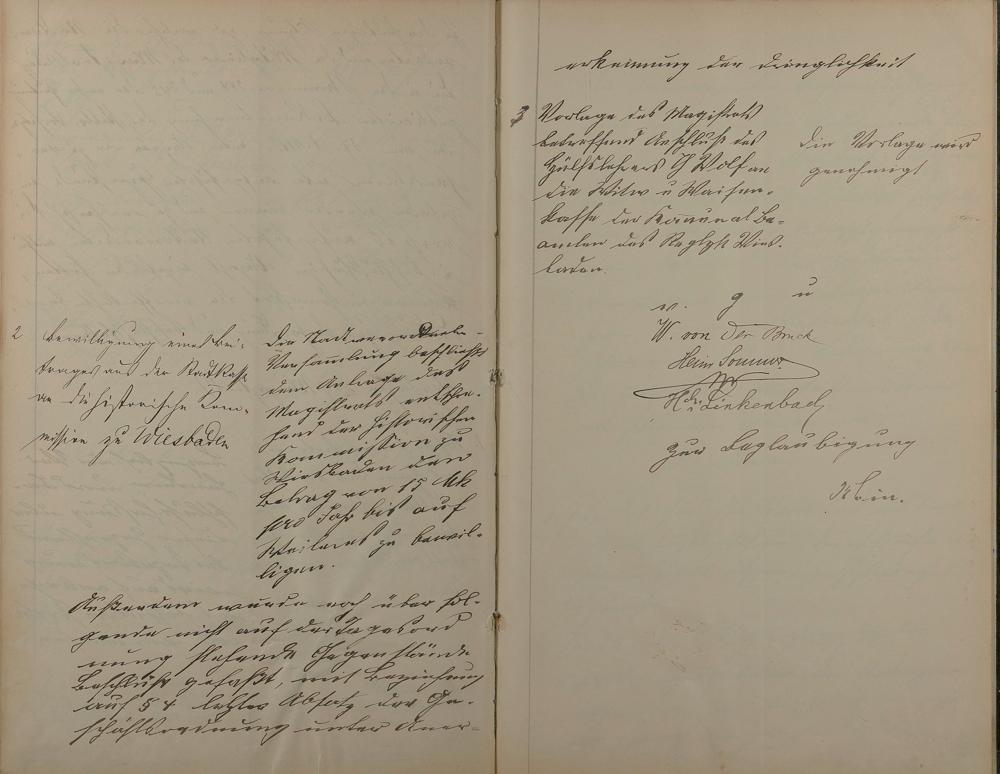 2 Bewilligung eines Bei-
trages aus der Stadtkasse
an die historische Kom-
mission zu Wiesbaden
Die Stadtverordneten-
Versammlung beschließt
dem Antrage des
Magistrats entspre-
chend der historischen
Kommission zu
Wiesbaden den
Betrag von 15 Mk
pro Jahr bis auf
Weiteres zu bewil-
ligen.
Außerdem wurde noch über fol-
gende nicht auf der Tagesord
nung stehende Gegenstände
Beschluß gefaßt, mit Beziehung
auf § 4 letzter Absatz der Ge-
schäftsordnung unter Aner-
erkennung der Dringlichkeit
3 Vorlage des Magistrats
betreffend Anschluß des
Hülfslehrers G Wolf an
die Witw u Waisen-
kasse der Kommunal Be-
amten des Regbzk Wies-
baden.
Die Vorlage wird
genehmigt
v. g u
W. von Der Bruck
Heinr Sommer
Hch. Linkenbach
Zur Beglaubigung